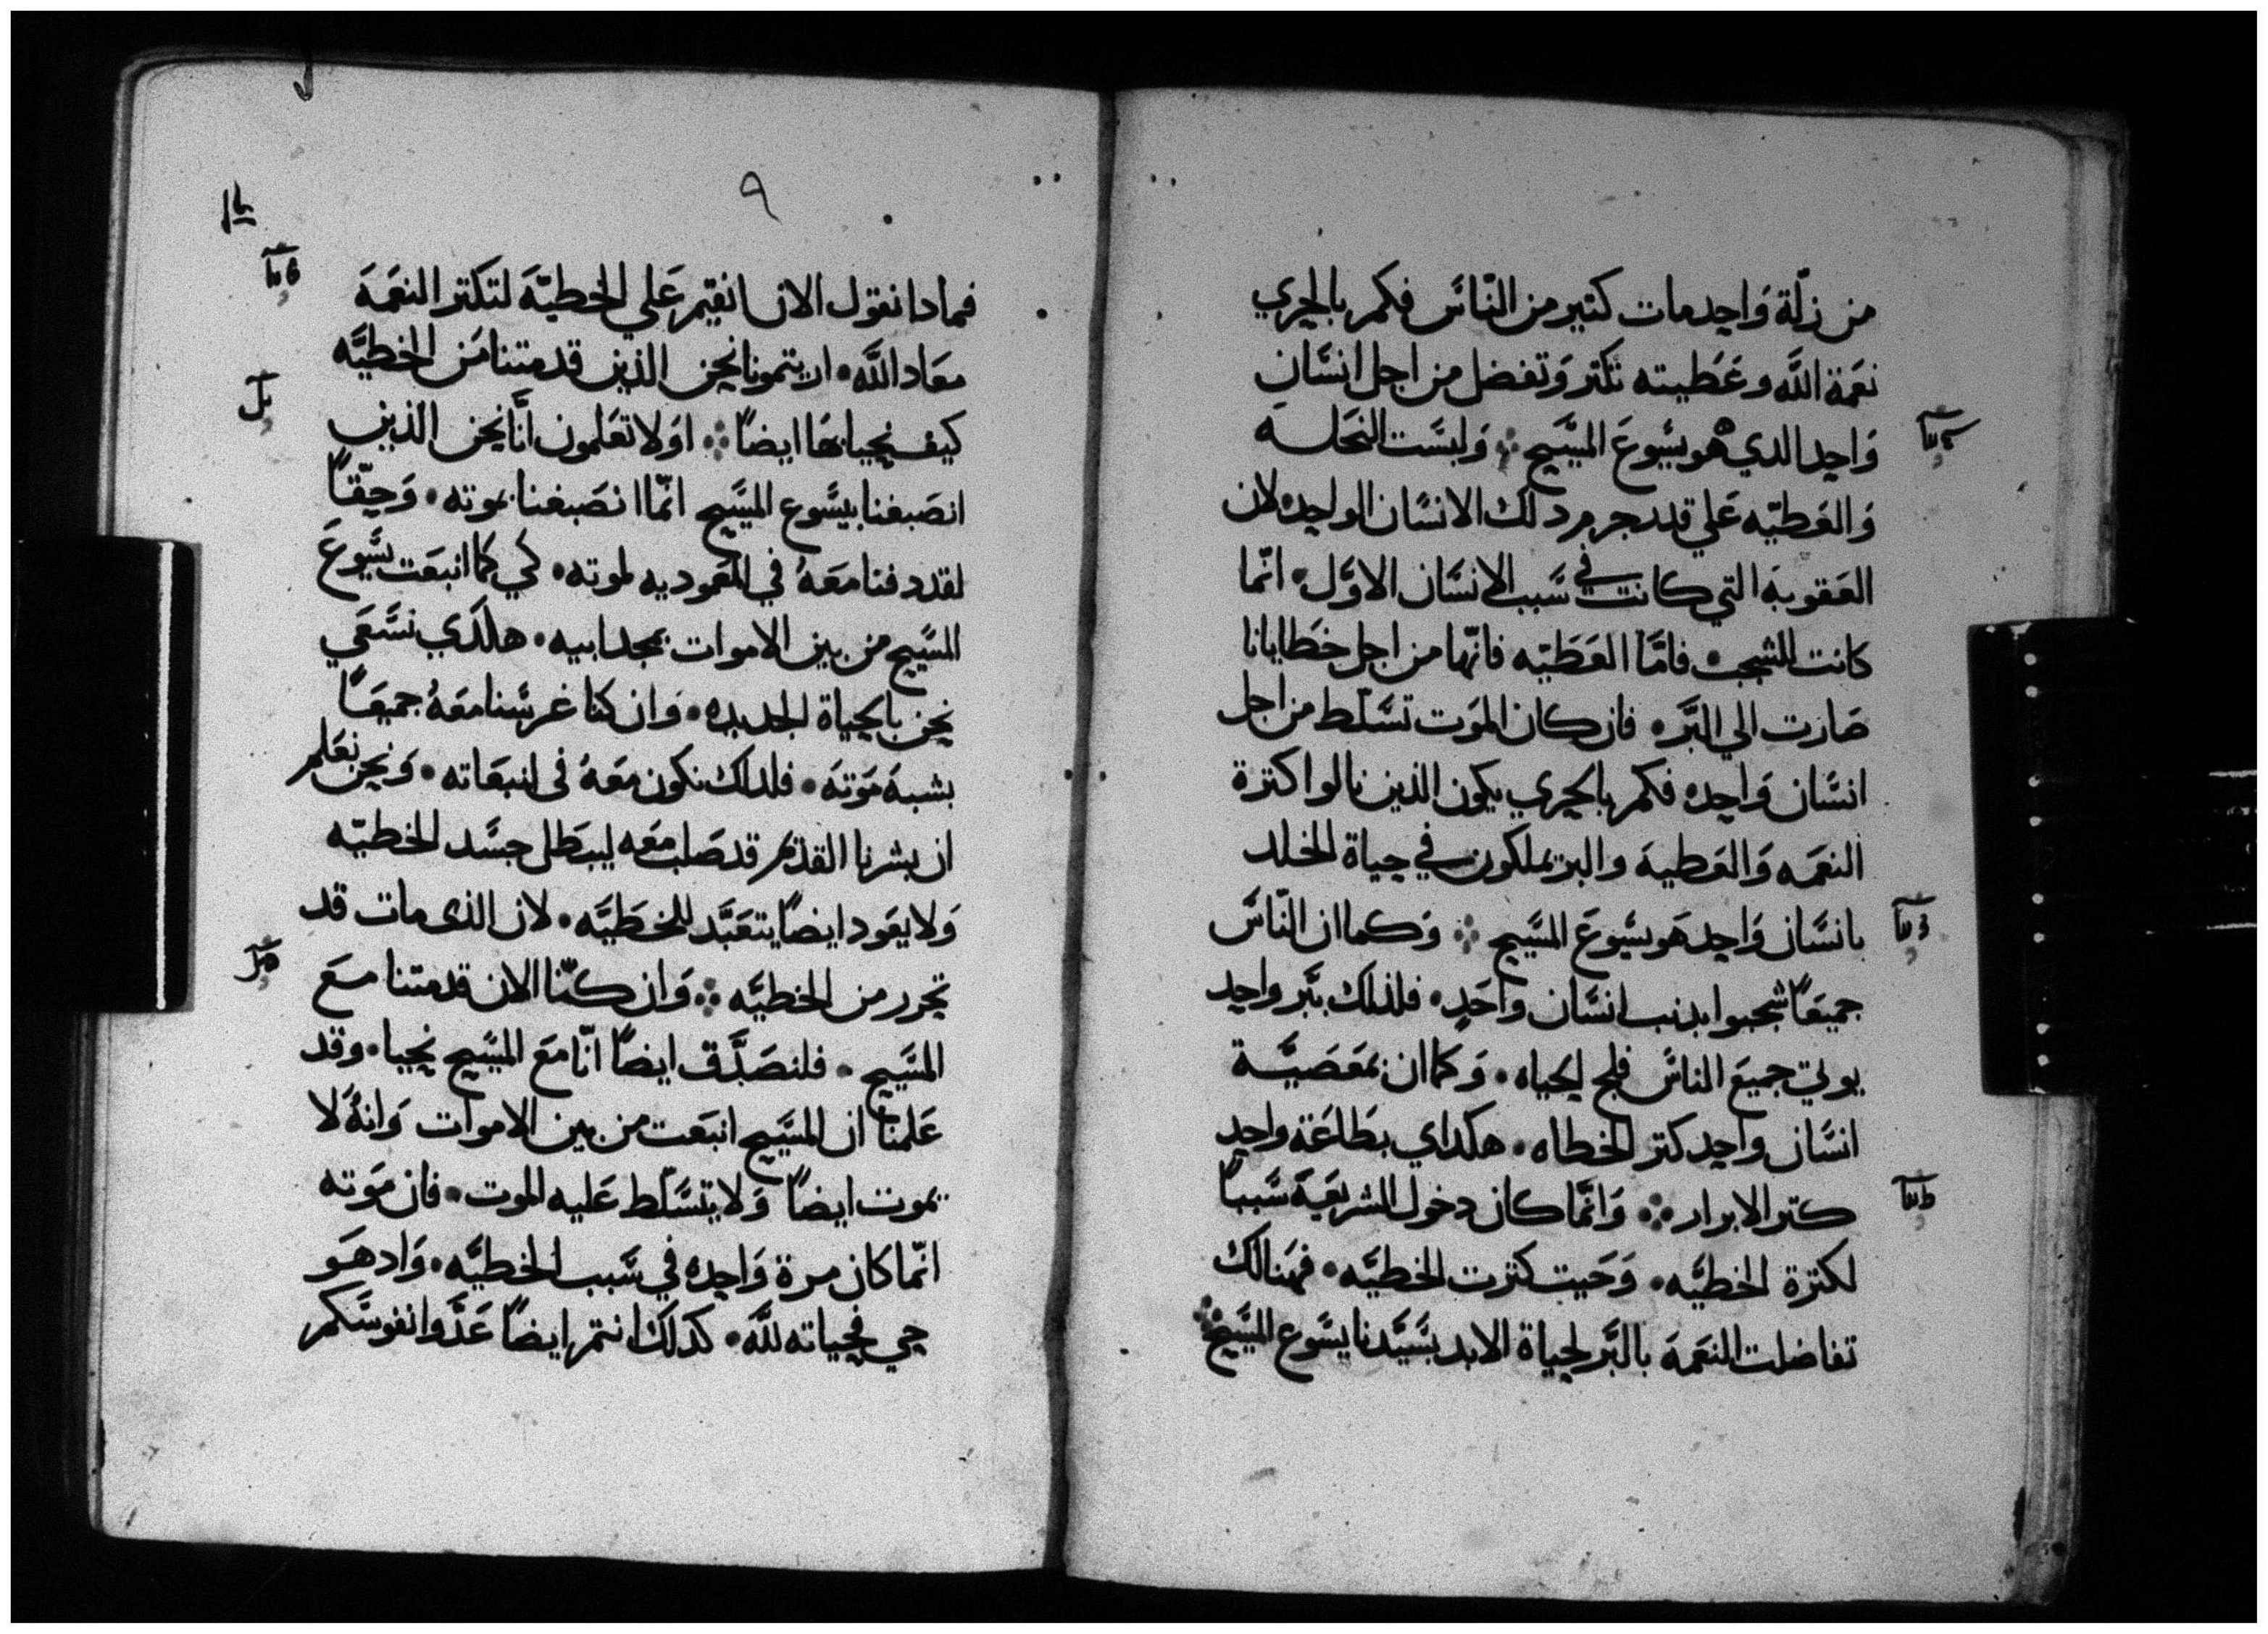 من زلّة وَاحِد مات كتير من النّاسَ فكم بالحري
نعَمة اللَّه وعَطيته تكتر وَتفضل من اجل انسَّانٍ
وَاحِد الدي هو يسَّوعَ المسَّيح وَليسَّت النحَله
وَالعَطيّه عَلي قدر جرم دلك الانسَّان الواحِد لان
العَقوبة التي كانت في سَّبب الانسَّان الاوّل انّما
كانت للشجب فامَّا العَطَيّه فانّها من اجل خطايانا
صَارت الي البَّر فان كان الموَت تسَّلّط من اجل
انسَّان وَاحِد فكم بالحري يكون الذين نالوا كترة
النعَمه وَالعَطيه والبر يملكون في حياة الخلد
بانسَّان وَاحِد هَو يسَّوعَ المسَّيح وَكما ان النّاسَّ
جميعَاً شجبوا بدنب انسَّان واحَدٍ فلذلك ببَّر واحِد
يوتي جميعَ الناسَّ فلج الحياه وَكما ان بمعَصَيَّة
انسَّان واحِد كتر الخطاه هكداي بطَاعَة واحِد
كتر الابرار وَانَّما كان دخول الشريعَية سَّبباً
لكترة الخطيَّه وَحَيت كترت الخطيَّه فهنالك
تفاضلت النعَمة بالبَّر لحياة الابد بسَّيَّدنا يسَّوع المسَّيح
٩
فمادا نقول الان انقيم عَلي الخطيّة لتكتر النعَمَة
معَاد اللَّه ان يتمونا نحن الذين قد متنا مَن الخطيَّه
كيف نحيا بها ايضاً اوَلا تعَلمون انَّا نحن الذين
انصَبغنا بيسَّوع المسَّيح انّما انصَبغنا بموته وَحقّاً
لقد دفنا معَهُ في المعَموديه لموته كي كما انبعَت يسَّوعَ
المسَّيح من بين الاموات بمجد ابيه هلكَدي نسَّعَي
نحن بالحياة الجديده وَان كنا غرسَّنا معَهُ جميعَاً
بشبهَ مَوَته فلدلك نكون معَهُ فى انبعَاته وَنحن نعَلم
ان بشرنا القديم قد صَلب معَه ليبطل جسَّد الخطيّه
وَلا يعَود ايضاً يتعَبَّد للخطَيَّه لان الذى مات قد
تحرر من الخطيَّه وَان كنّا الان قد متنا معَ
المسَّيح فلنصَدَّق ايضاً انّا معَ المسَّيح نحيا وقد
عَلمنا ان المسَّيح انبعَت من بين الاموات وَانهُ لا
يموت ايضاً وَلا يتسَّلّط عَليه الموت فان مَوته
انّما كان مرة وَاحِده في سَّبب الخطيَّه وَاد هَو
حي فحياته للَّه كدلك انتم ايضاً عَدَّوا نفوسَّكم